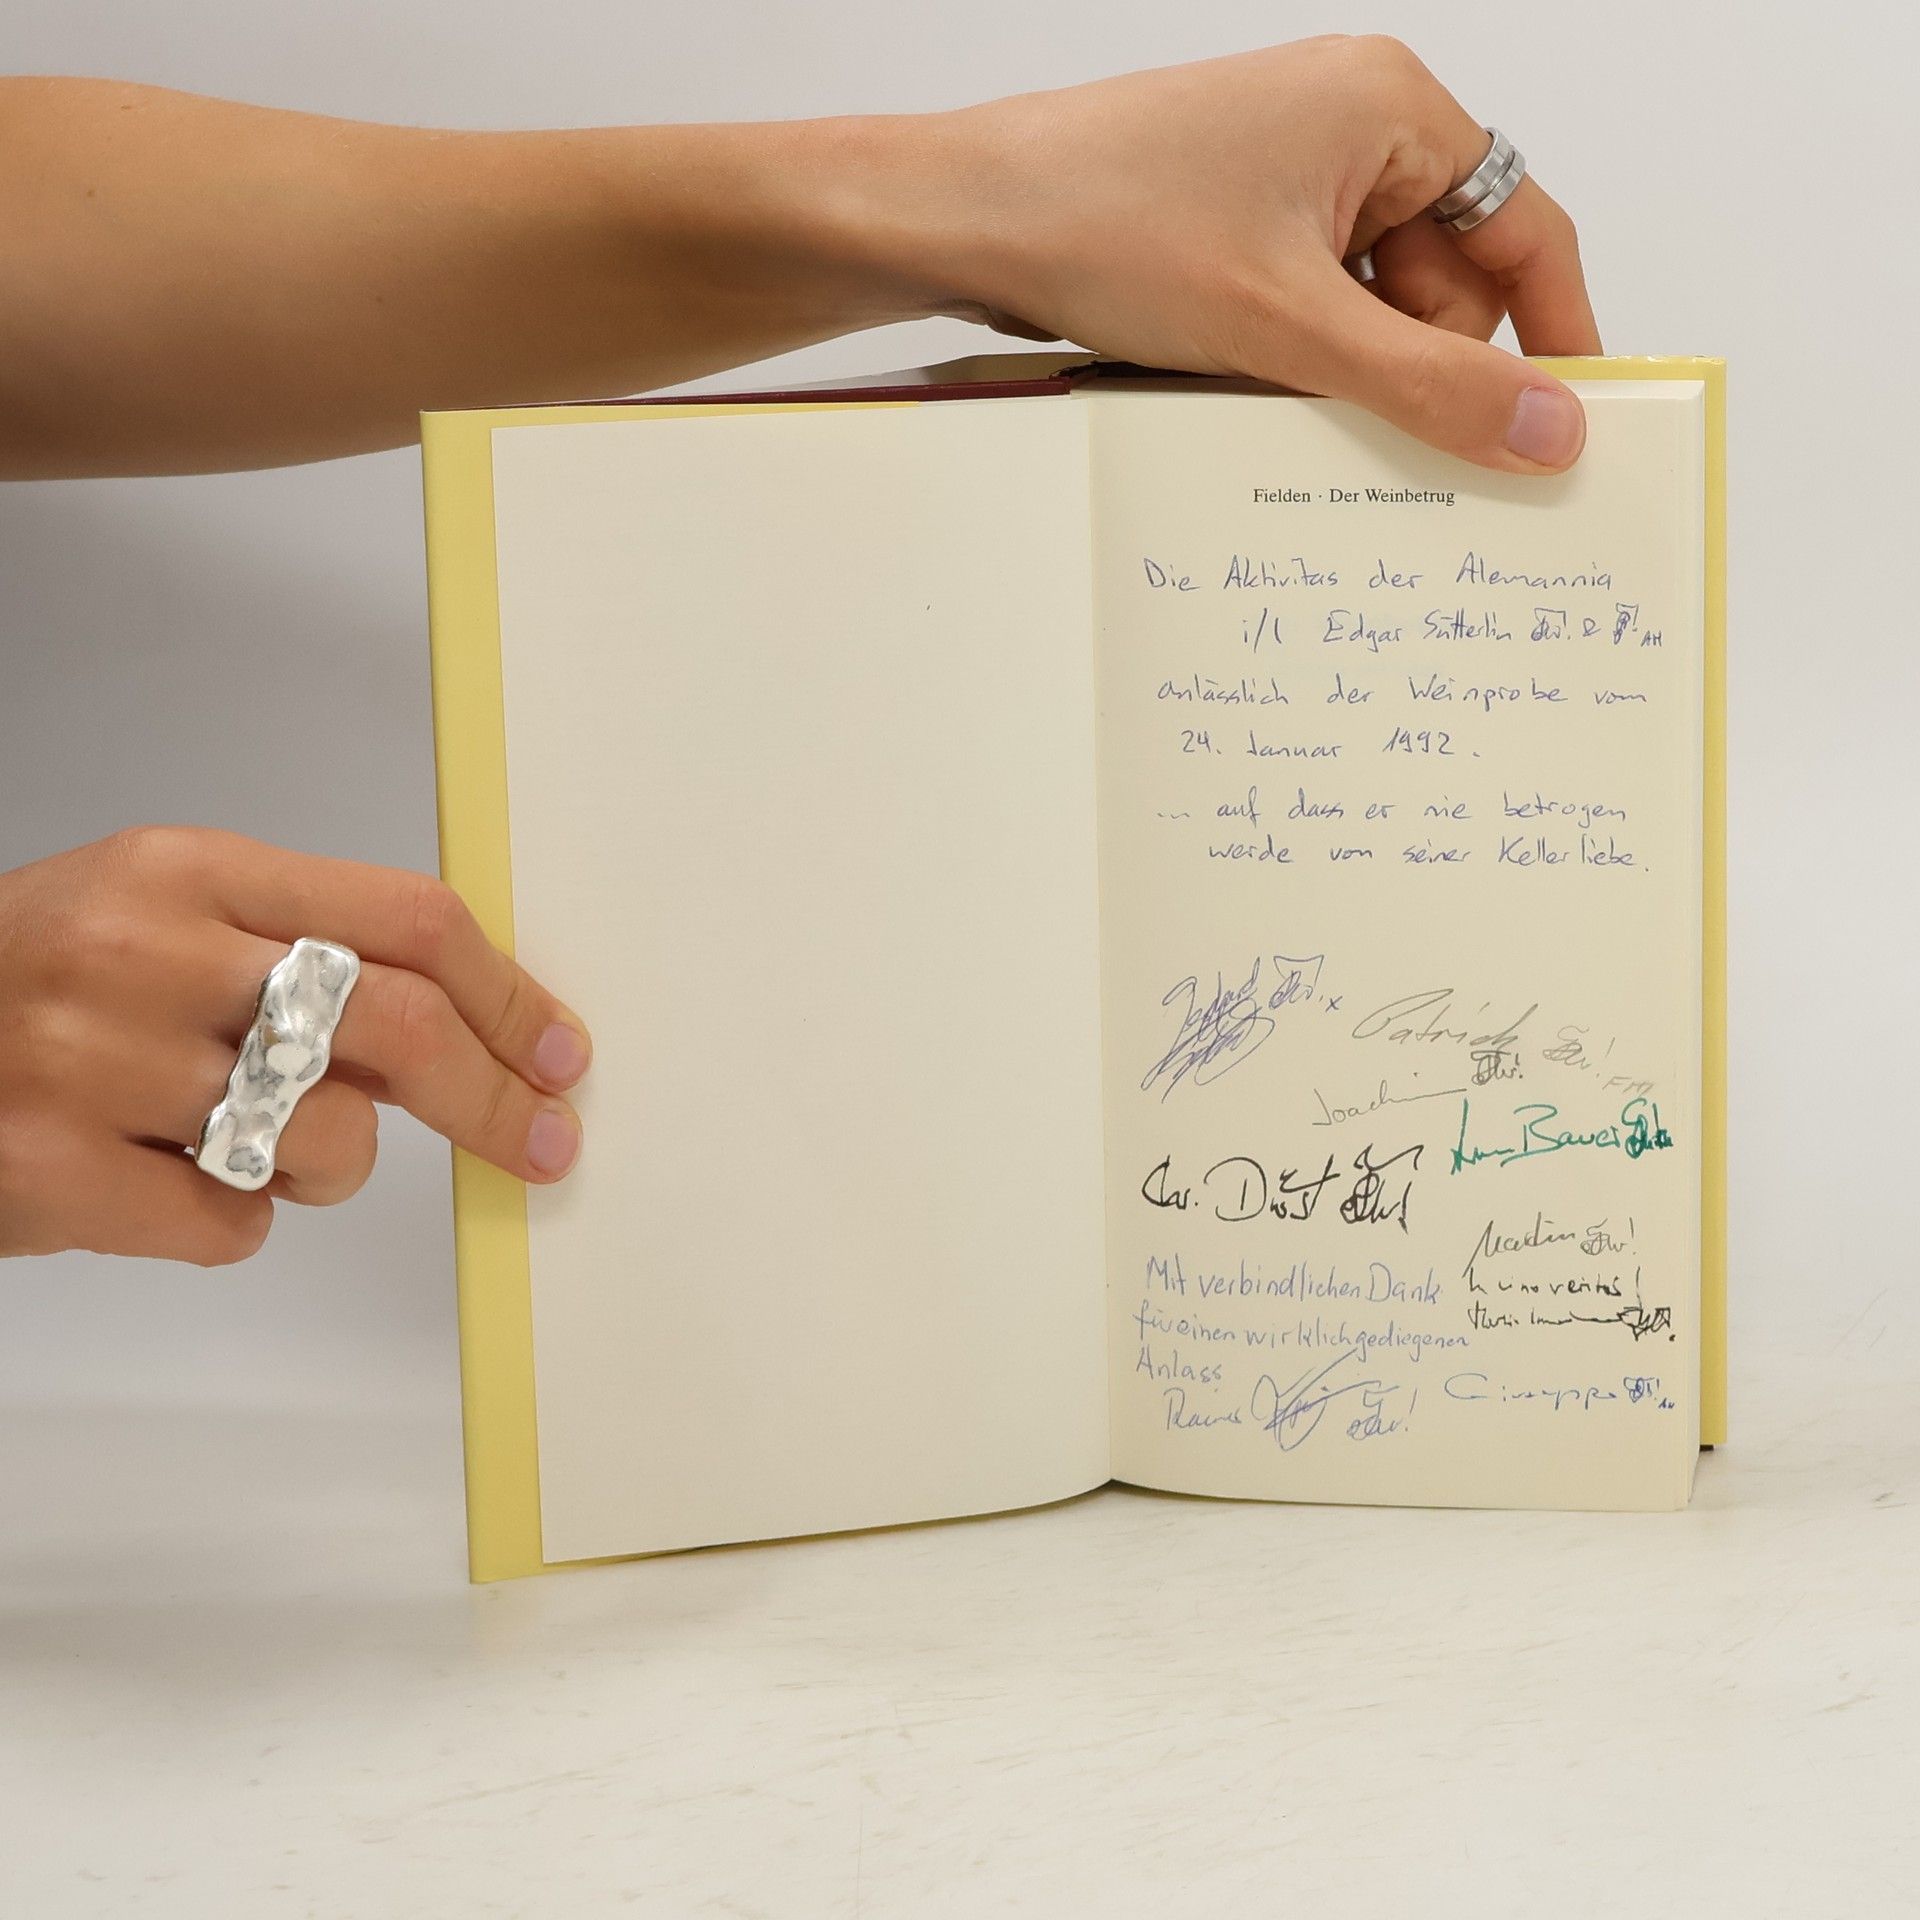 Fielden · Der Weinbetrug
Die Aktivitas der Alemannia
i/l Edgar Sütterlin & AH
anlässlich der Weinprobe vom
24. Januar 1992.
... auf dass er nie betrogen
werde von seiner Kellerliebe.
x
Patrick ! FM
Joachim !
Bauer
Mit verbindlichen Dank
für einen wirklich gediegenen
Anlass
Rainer !
Martin !
In vino veritas!
Giuseppe ! AH